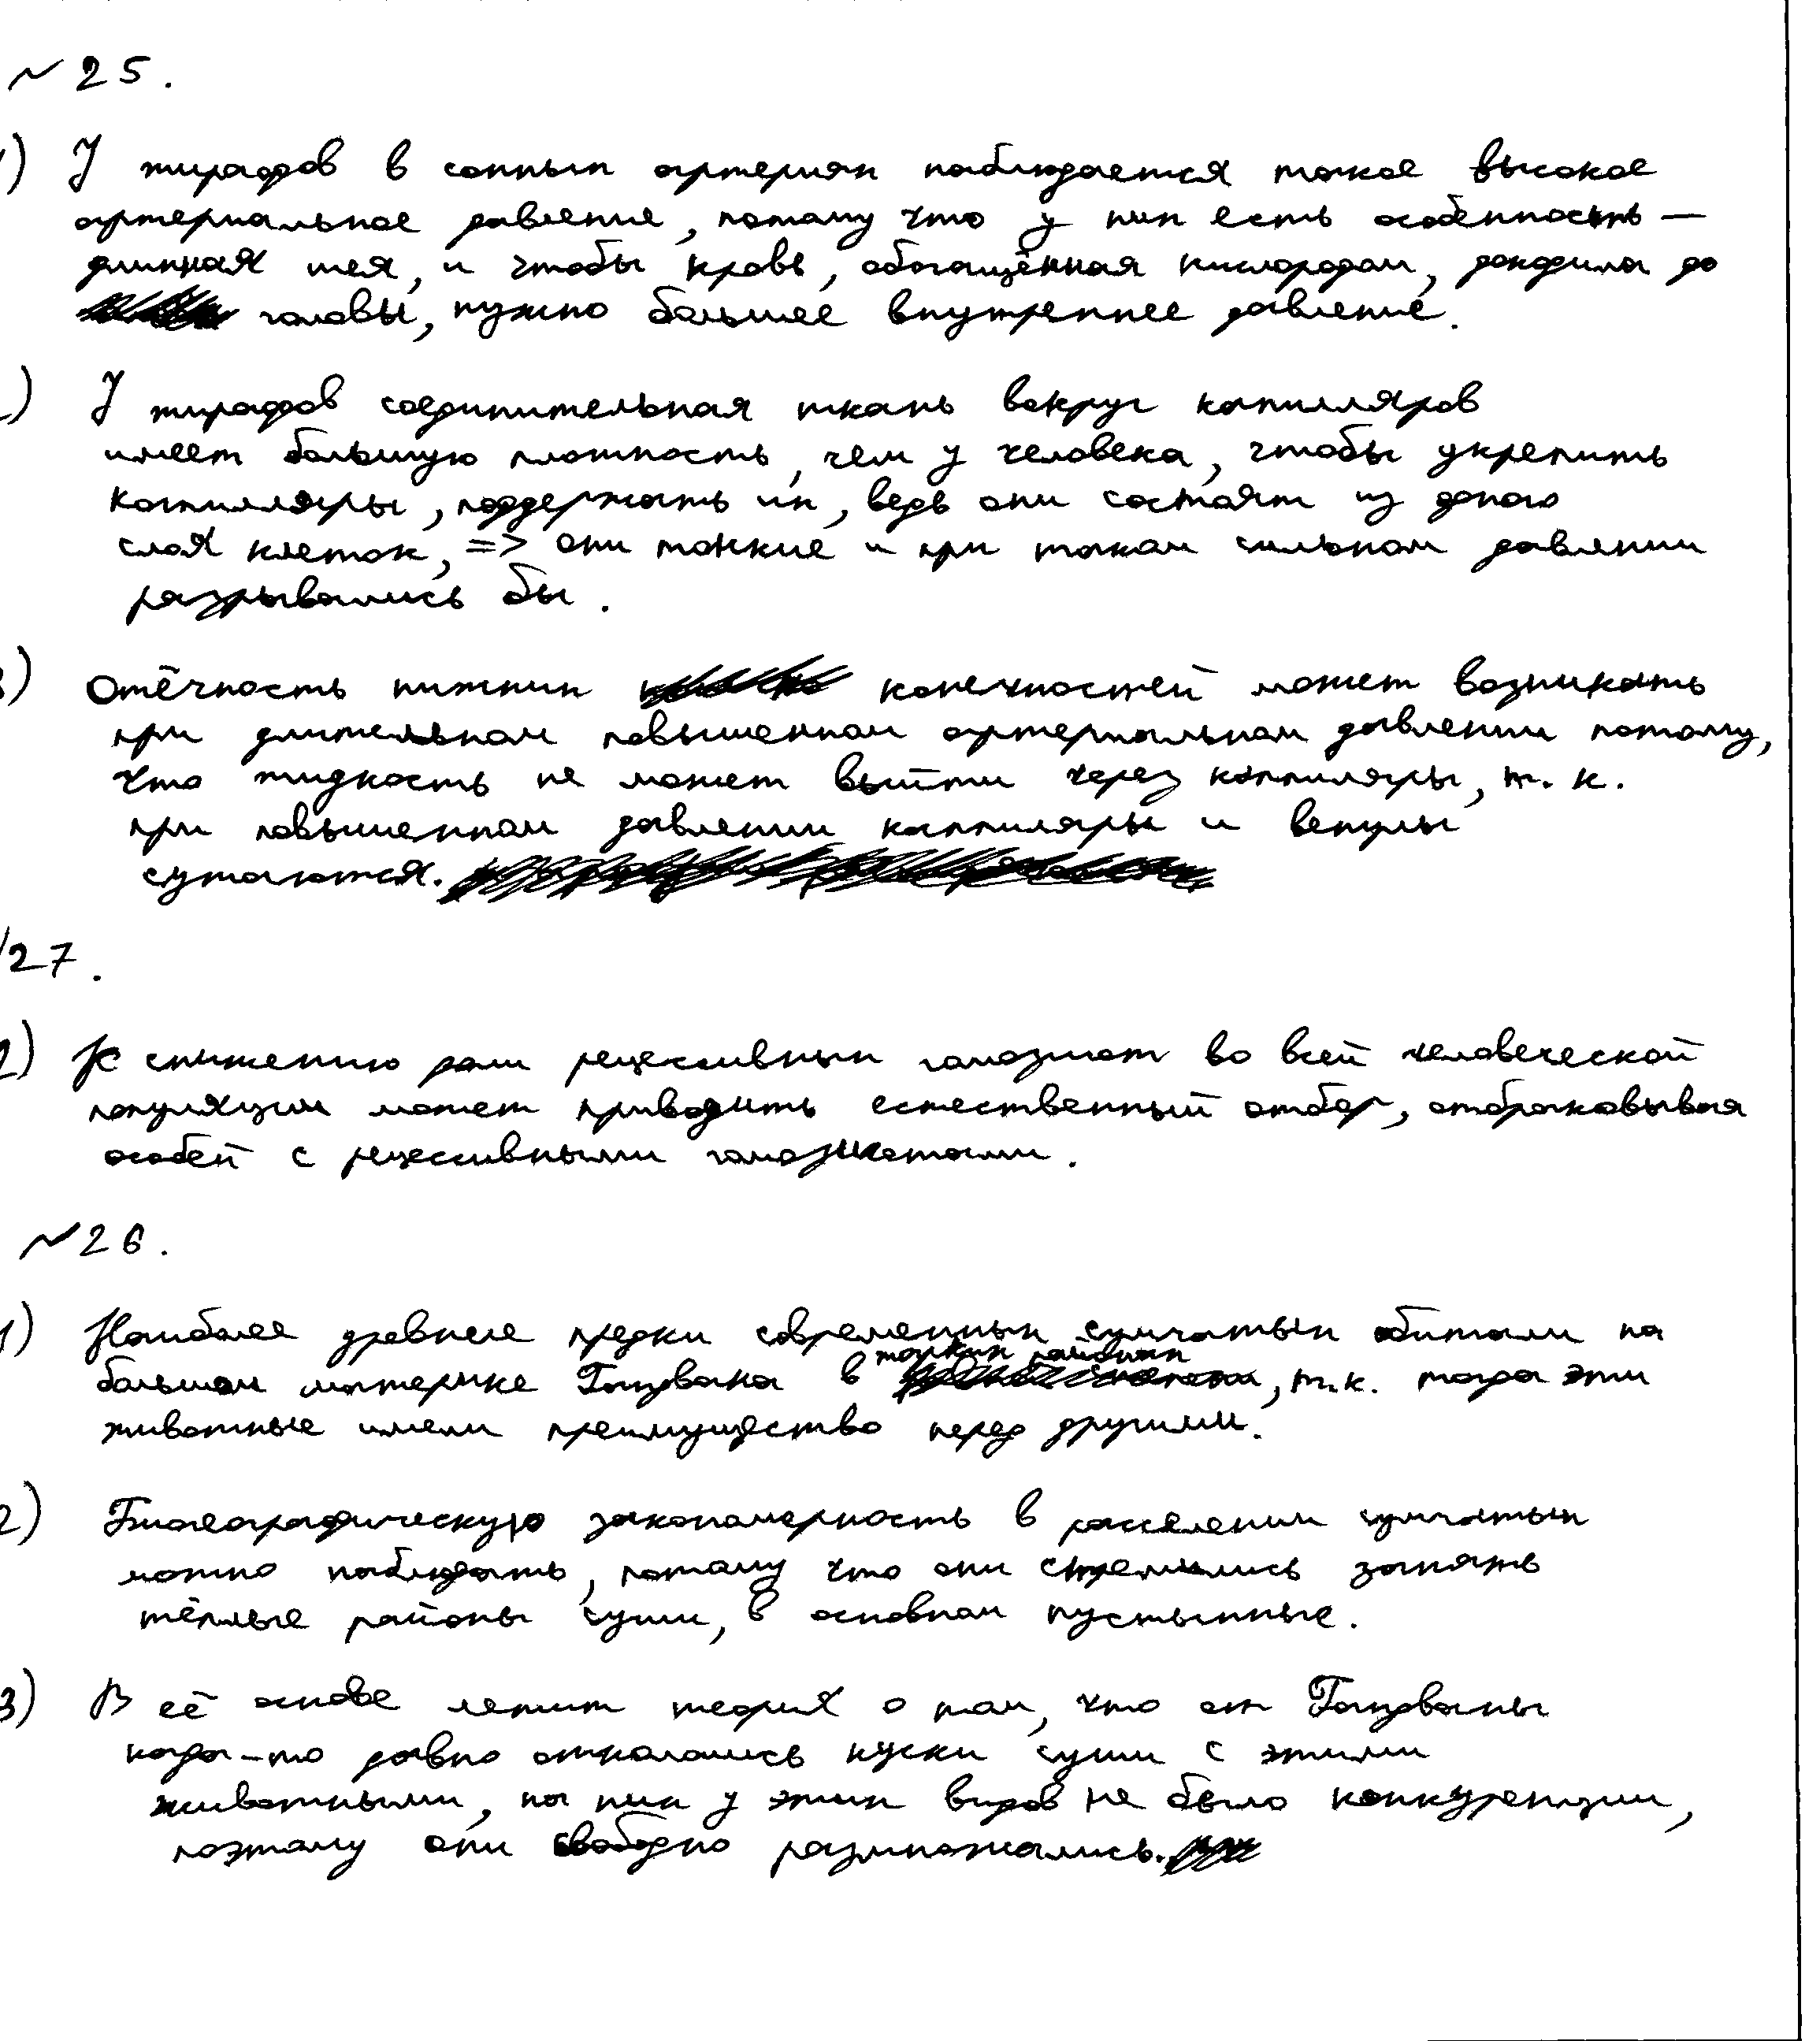 №25.
1) У жирафов в сонных артериях наблюдается такое высокое
артериальное давление, потому что у них есть особенность —
длинная шея, и чтобы кровь, обогащённая кислородом, доходила до
головы, нужно большее внутреннее давление.
2) У жирафов соединительная ткань вокруг капилляров
имеет большую плотность, чем у человека, чтобы укрепить
капилляры, поддержать их, ведь они состоят из одного
слоя клеток, => они тонкие и при таком сильном давлении
разрывались бы.
3) Отёчность нижних конечностей может возникать
при длительном повышенном артериальном давлении потому,
что жидкость не может выйти через капилляры, т. к.
при повышенном давлении капилляры и венулы
сужаются.
№27.
2) К снижению доли рецессивных гомозигот во всей человеческой
популяции может приводить естественный отбор, отбраковывая
особей с рецессивными гомозиготами.
№26.
1) Наиболее древние предки современных сумчатых обитали на
большом материке Гондвана в жарких районах, т.к. тогда эти
животные имели преимущество перед другими.
2) Биогеографическую закономерность в расселении сумчатых
можно наблюдать, потому что они стремились занять
тёплые районы суши, в основном пустынные.
3) В её основе лежит теория о том, что от Гондваны
когда-то давно откололись куски суши с этими
животными, на них у этих видов не было конкуренции,
поэтому они свободно размножались.